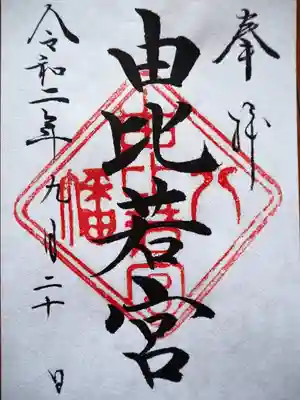 奉拝
由比若宮
八幡
令和二年九月二十日